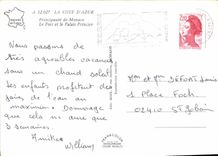 A 12327 - LA COTE D'AZUR
Principauté de Monaco
Le Port et le Palais Princier
Nous passons de
très agréables vacances
sous un chaud soleil
les enfants profitent des
joies de l'eau au
maximum. Dommage
que cela ne dure que
3 semaines.
Amitiés
William
2,20
Mr et Mme
1 Place Foch
02410 St Gobain